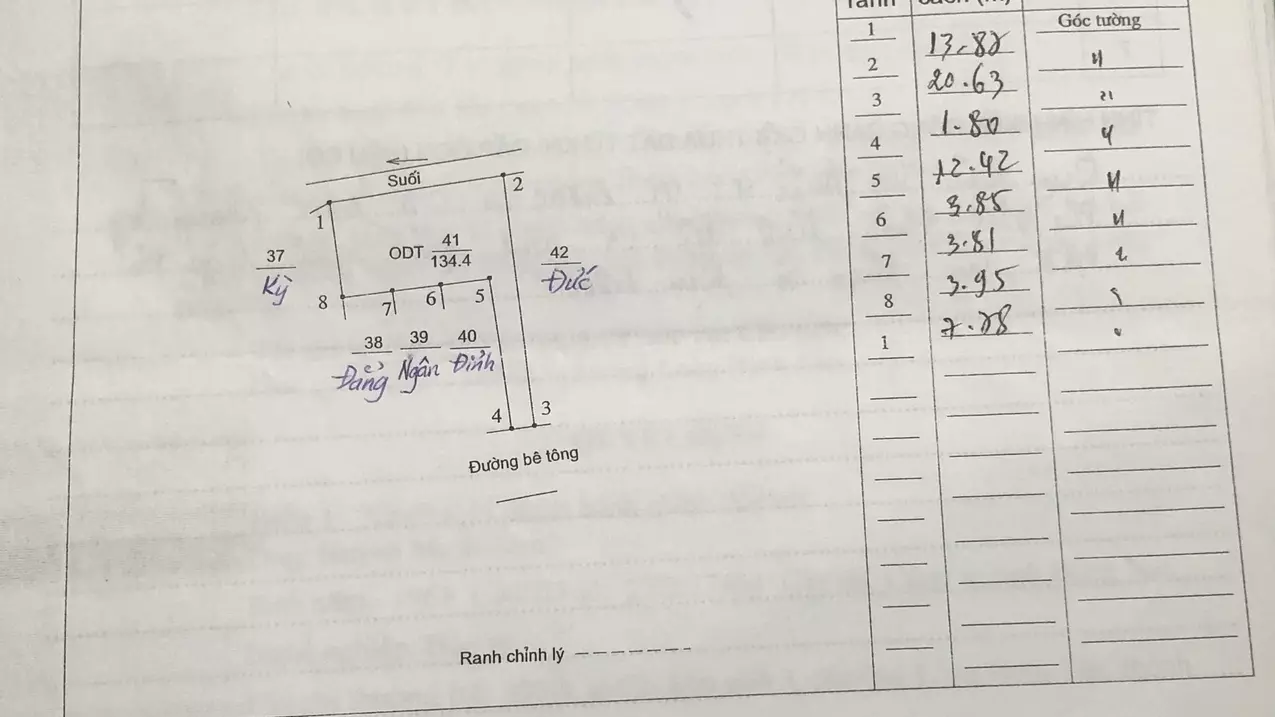 Suối
1
2
37
Kỳ
ODT 41
134.4
42
Đức
8
7
6
5
38
39
40
Đẳng
Ngân
Đỉnh
4
3
Đường bê tông
Ranh chỉnh lý
ranh
1
2
3
4
5
6
7
8
1
13.82
20.63
1.80
12.42
3.85
3.81
3.95
Góc tường